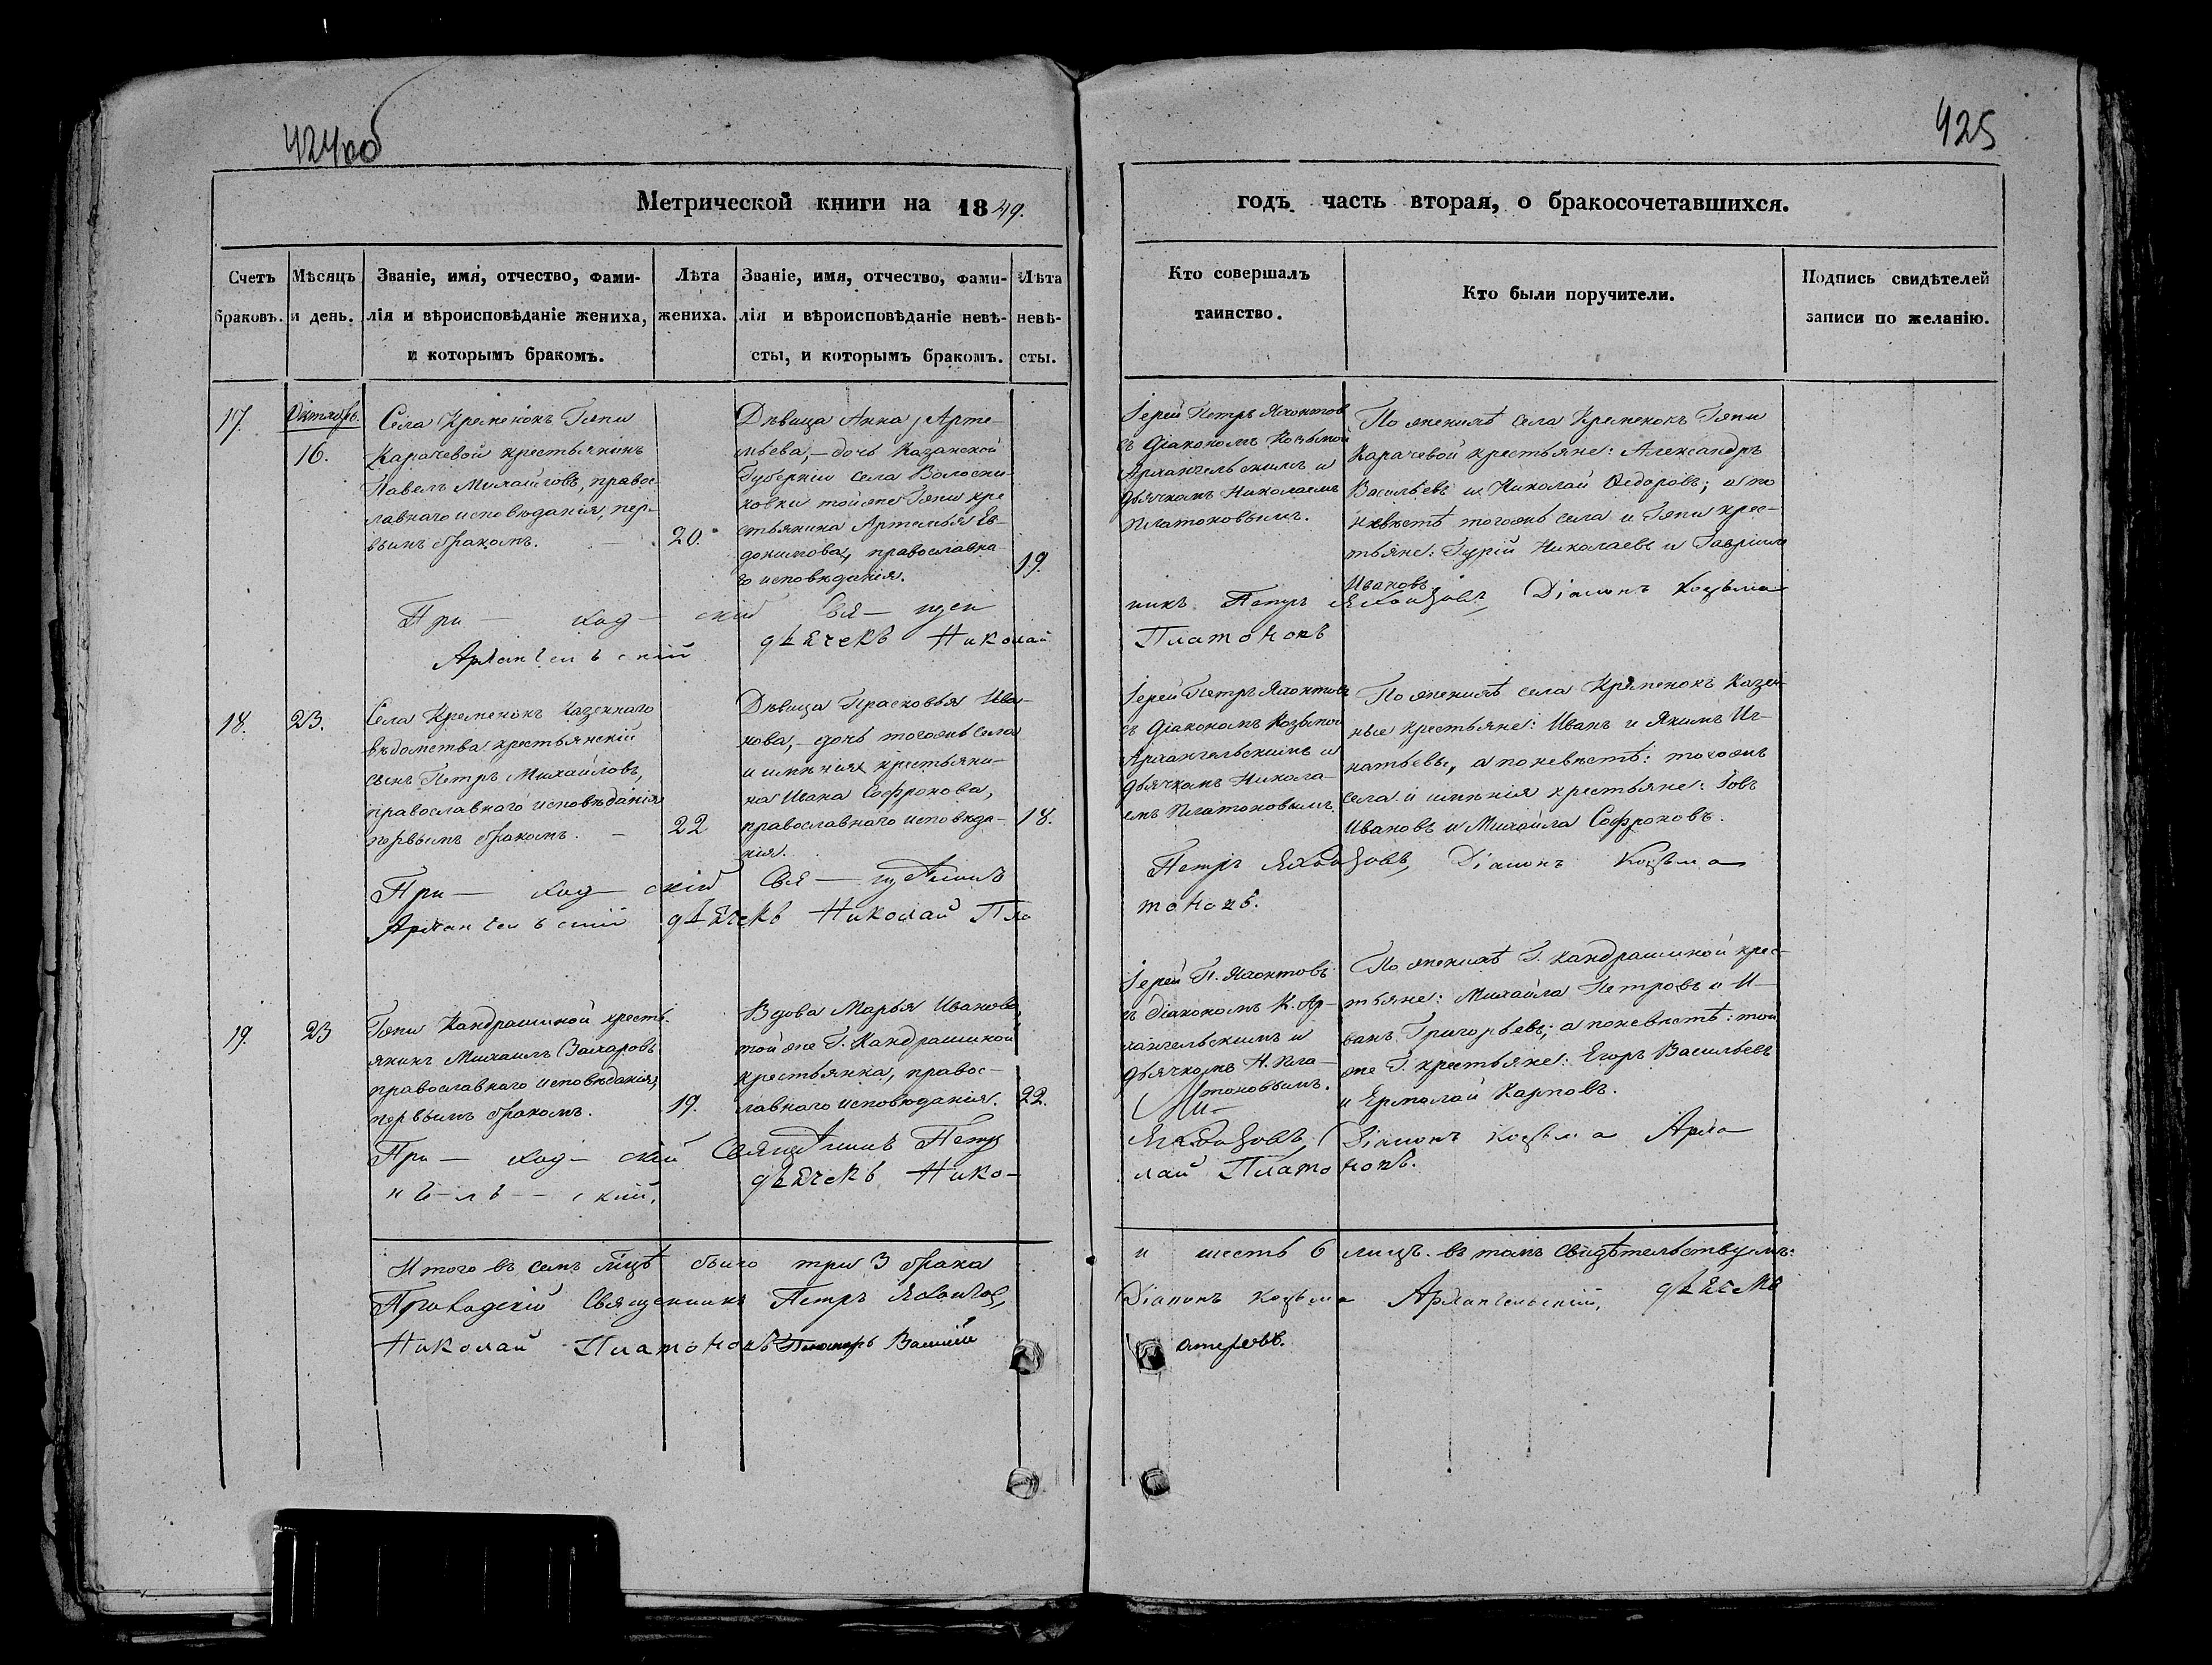 424об
425
Метрической книги на 1849.
годъ часть вторая, о бракосочетавшихся.
Счетъ браковъ.
Мѣсяцъ и день.
Званіе, имя, отчество, фами-
лія и вѣроисповѣданіе жениха,
и которымъ бракомъ.
Лѣта
жениха.
Званіе, имя, отчество, фами-
лія и вѣроисповѣданіе невѣ-
сты, и которымъ бракомъ.
Лѣта
невѣ-
сты.
Кто совершалъ
таинство.
Кто были поручители.
Подпись свидѣтелей
записи по желанію.
17.
Октябрь.
16.
Села Кременокъ Гжи
Карачевой крестьянинъ
Павелъ Михайловъ, право-
славнаго исповѣданія, пер-
вымъ бракомъ. —
20.
Дѣвица Анна, Арте-
мьева, — дочь Казанской
Губерніи села
тойже Гжи кре
стьянина Артемья Ев-
докимова, православна-
го исповѣданія.
19.
Іерей Петръ Яхонтовъ
съ діакономъ Козьмой
Архангельскимъ и
дьячкомъ Николаемъ
Платоновымъ.
По женихѣ села Кременокъ Гжи
Карачевой крестьяне: Александръ
Васильевъ и Николай Ѳедоровъ; а по
невѣстѣ тогожъ села и Гжи крес-
тьяне: Гурій Николаевъ и Гавріила
Ивановъ
При — ход — скій Свя — щен
никъ Петръ Яхонтовъ, Діаконъ Козьма
Архангельскій дьячекъ Николай
Платоновъ
18.
23.
Села Кременокъ Казеннаго
вѣдомства крестьянскій
сынъ Петръ Михайловъ,
православнаго исповѣданія
первымъ бракомъ. —
22
Дѣвица Прасковья Ива-
нова, — дочь тогожъ села
и имѣнія крестьяни-
на Ивана Софронова,
православнаго исповѣда-
нія.
18.
Іерей Петръ Яхонтовъ
съ діакономъ Козьмой
Архангельскимъ и
дьячкомъ Никола-
емъ Платоновымъ.
По женихѣ села Кременокъ Казен-
ные крестьяне: Иванъ и Якимъ Иг-
натьевы, а по невѣстѣ: тогожъ
села и имѣнія крестьяне: Іовъ
Ивановъ и Михайла Софроновъ.
При — ход — скій Свя — щенникъ
Петръ Яхонтовъ, Діаконъ Козьма
Архангельскій дьячекъ Николай Пла
тоновъ.
19.
23
Гжи Кандрашиной кресть-
янинъ Михаилъ Захаровъ
православнаго исповѣданія,
первымъ бракомъ.
19.
Вдова Марья Иванова,
той же Г. Кандрашиной
крестьянка, правос-
лавнаго исповѣданія.
22.
Іерей П. Яхонтовъ
съ діакономъ К. Ар-
хангельскимъ и
дьячкомъ Н. Пла-
тоновымъ.
По женихѣ Г. Кандрашиной крес-
тьяне: Михайла Петровъ и И-
ванъ Григорьевъ; а по невѣстѣ: той
же Г. крестьяне: Егоръ Васильевъ
и Ермолай Карповъ.
При — ход — скій Священникъ Петръ
Яхонтовъ, Діаконъ Козьма Арха
нгель — скій, дьячекъ Нико-
лай Платоновъ.
Итого въ семъ мѣсяцѣ было три 3 брака
и шесть 6 лицъ. въ томъ свидѣтельствуемъ:
Приходскій Священникъ Петръ Яхонтовъ,
Діаконъ Козьма Архангельскій, дьячекъ
Николай Платоновъ